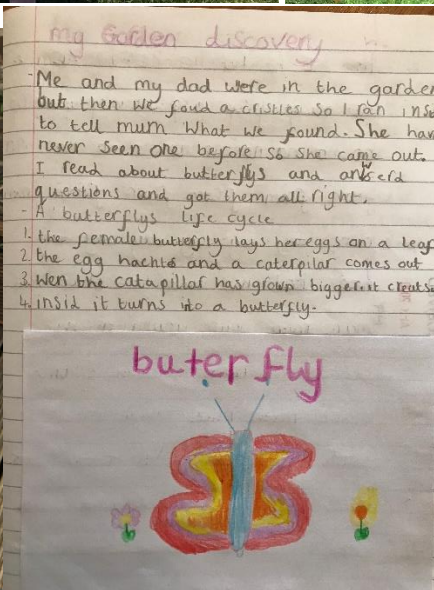 my Garden discovery
-Me and my dad were in the garden
but then we foud a cristles so I ran ins
to tell mum what we found. She hav
never seen one before so she came out.
I read about butterflys and answerd
questions and got them all right.
- A butterflys life cycle
1. the female butterfly lays her eggs on a leaf
2. the egg hachts and a caterpilar comes out
3. Wen the catapillar has grown bigger it creats
4. insid it turns into a butterfly.
buterfly